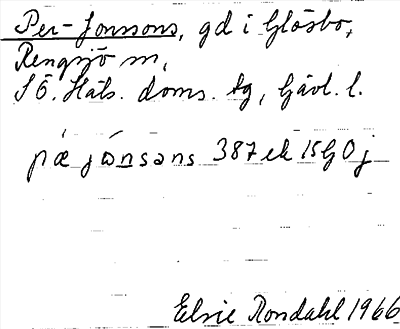 Per-Jonssons, gd i Glösbo,
Rengsjö sn,
SÖ. Häls. doms. tg, Gävl. l.
pæ jónsəns 387 ek 15G0j
Elsie Rondahl 1966